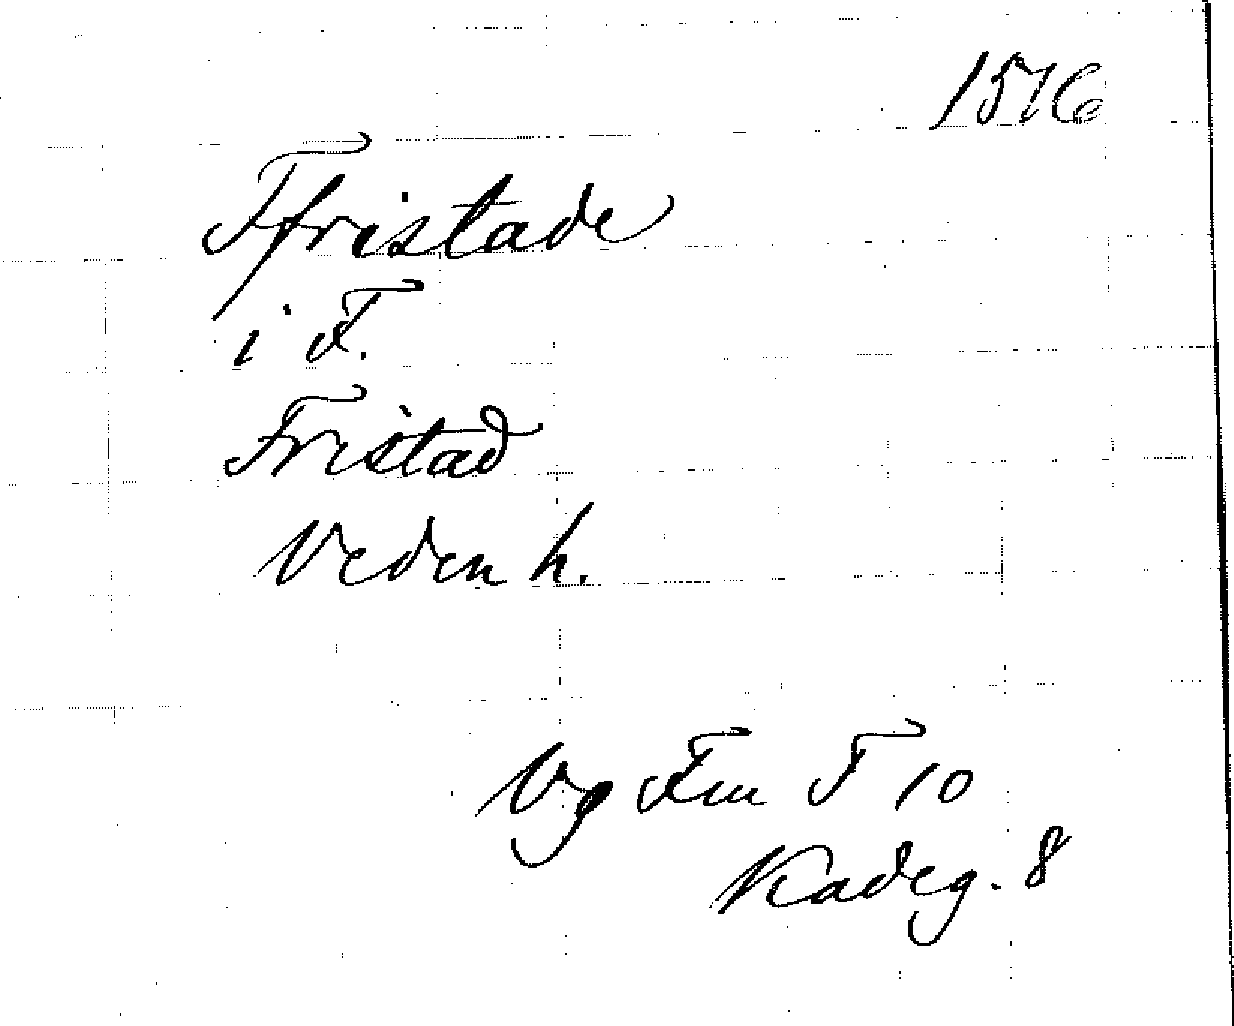 1576
Ffristade
i F.
Fristad
Veden h.
Vg Fru F 10
Kadeg. 8